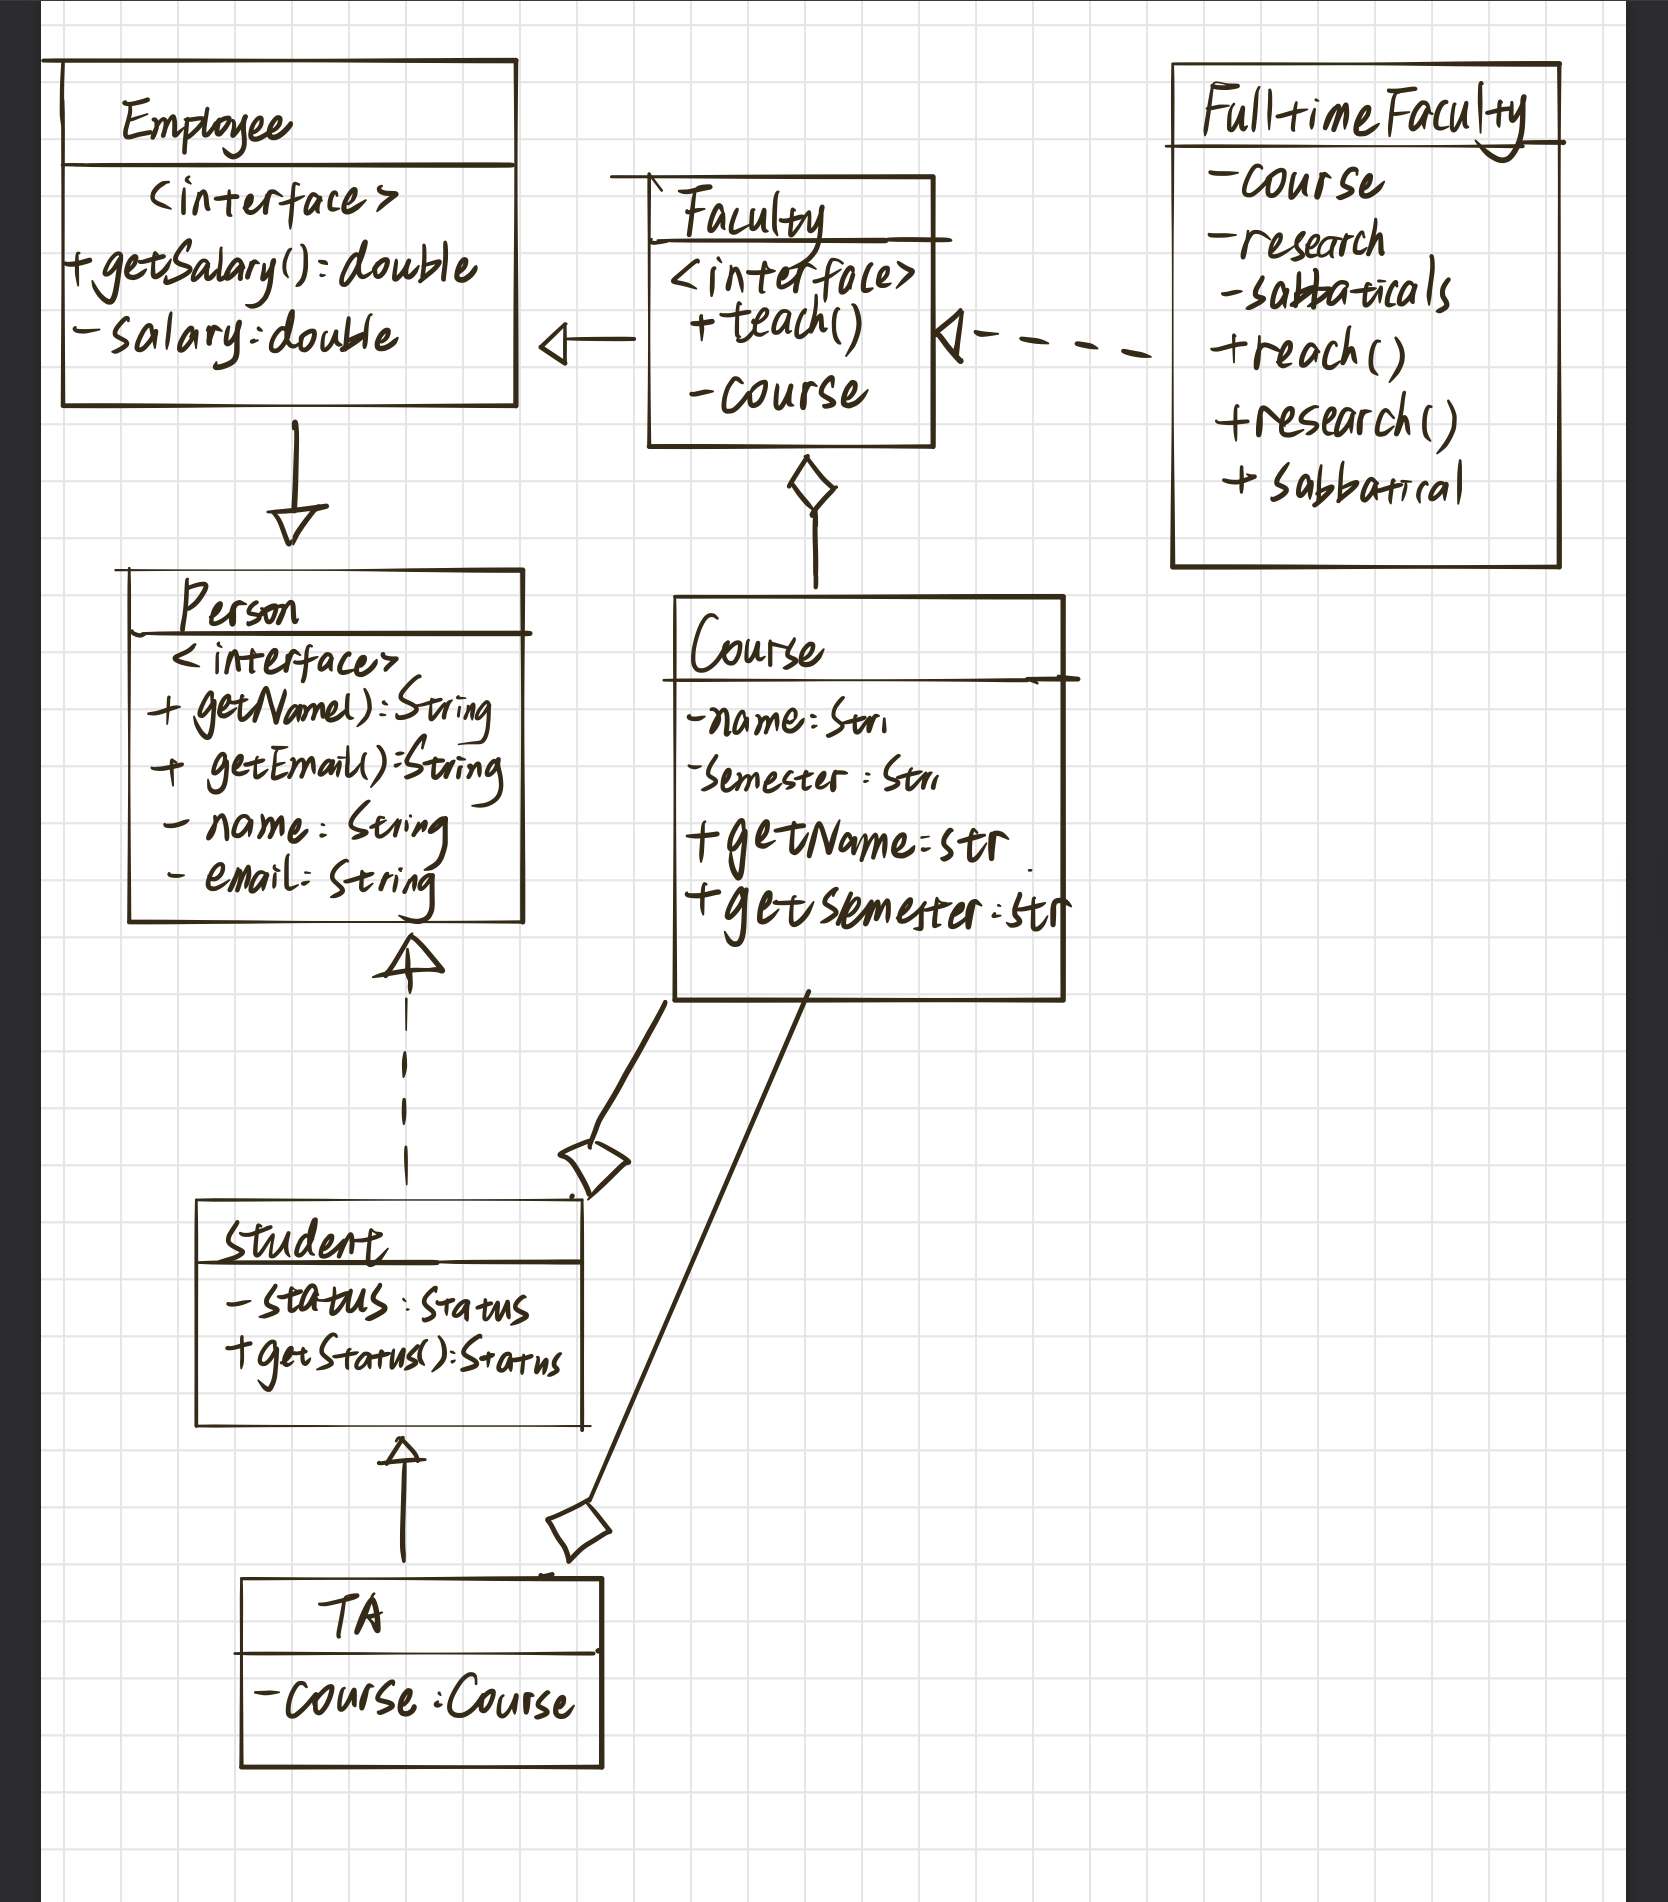 Employee
<interface>
+ getSalary(): double
- salary: double
Faculty
<interface>
+ teach()
- course
Full time Faculty
- course
- research
- sabbaticals
+ reach()
+ research()
+ sabbatical
Person
<interface>
+ getName(): String
+ getEmail(): String
- name: String
- email: String
Course
- name: Stri
- Semester: Stri
+ getName: str
+ get semester: str
Student
- status: status
+ getStatus(): Status
TA
- course: Course